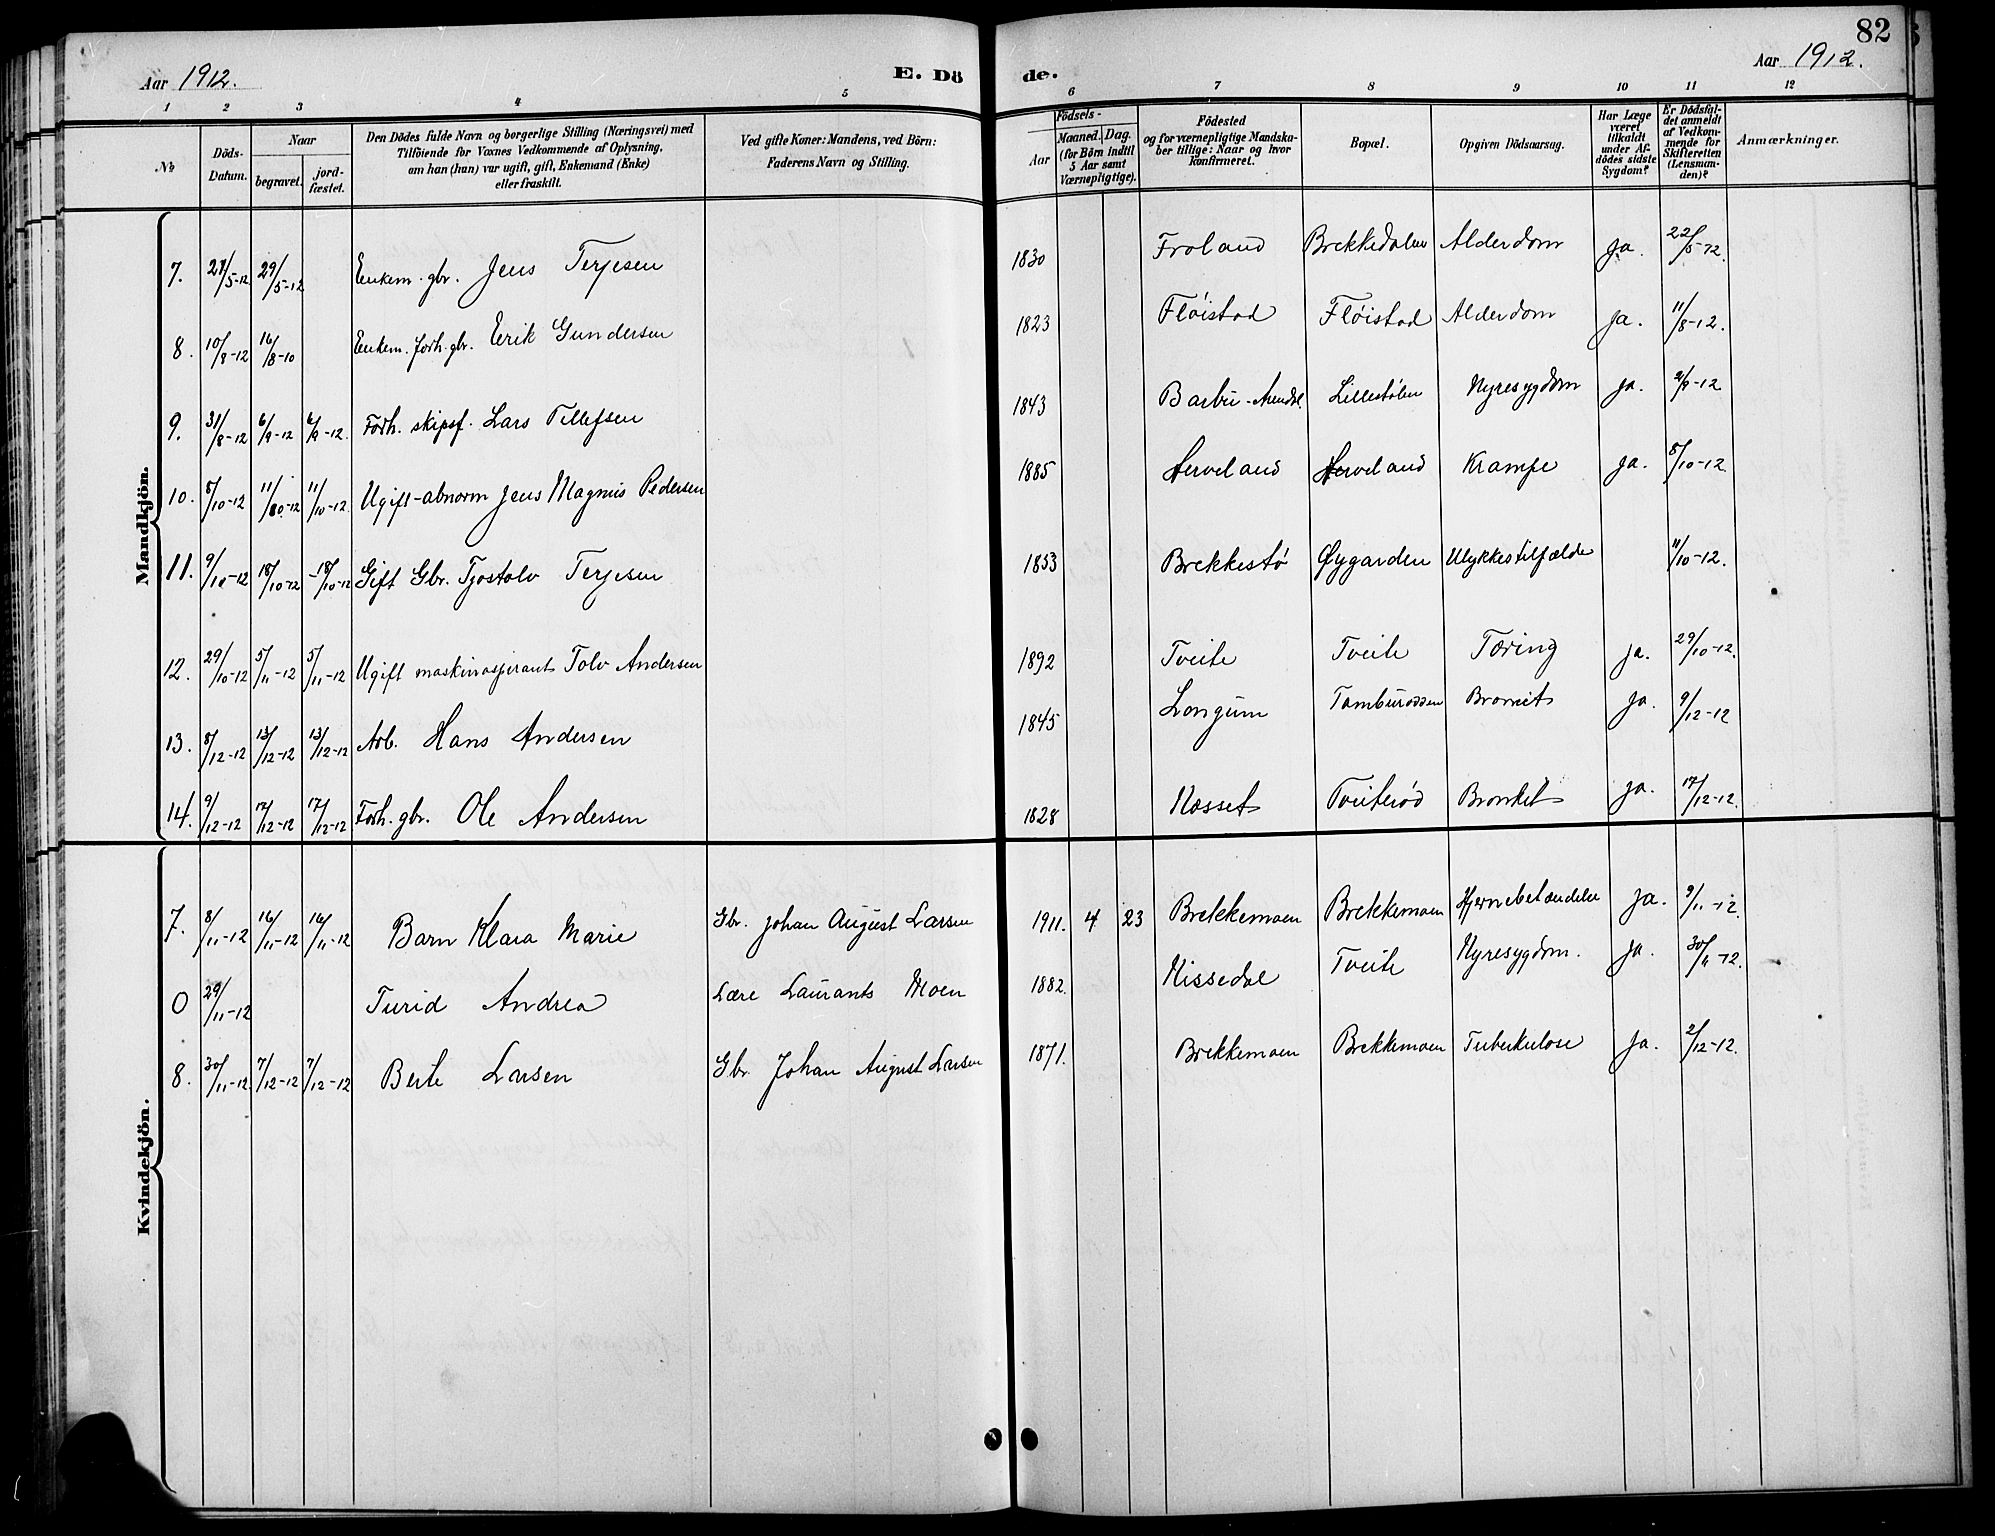 82
Aar 1912. E. Dö de. Aar 1912.
1 2 3 4 5 6 7 8 9 10 11 12
№
Döds-Datum.
Naar
begravet.
jord-fæstet.
Den Dödes fulde Navn og borgerlige Stilling (Næringsvei) med
Tilföiende for Voxnes Vedkommende af Oplysning,
om han (hun) var ugift, gift, Enkemand (Enke)
eller fraskilt.
Ved gifte Koner: Mandens, ved Börn:
Faderens Navn og Stilling.
Födsels-
Aar
Maaned. Dag.
(for Börn indtil
5 Aar samt
Værnepligtige).
Födested
og for værnepligtige Mandska-
ber tillige: Naar og hvor
konfirmeret.
Bopæl.
Opgiven Dödsaarsag.
Har Læge
været
tilkaldt
under Af-
dödes sidste
Sygdom?
Er Dödsfal-
det anmeldt
af Vedkom-
mende for
Skifteretten
(Lensman-
den)?
Anmærkninger.
Mandkjön.
7. 21/5-12 29/5-12 Enkem. gbr. Jens Terjesen 1830 Froland Brekkedalen Alderdom ja. 22/5-12.
8. 10/8-12 16/8-10 Enkem. forh. gbr. Eerik Gundersen 1823 Fløistad Fløistad Alderdom ja. 11/8-12.
9. 31/8-12 6/9-12 6/9-12. Forh. skipsf. Lars Tellefsen 1843 Barbu-Arendal. Lillestølen Nyresygdom ja. 2/9-12
10. 8/10-12 11/10-12 11/10-12. Ugift-abnorm Jens Magnus Pedersen 1885 Herveland Herveland Krampe ja. 8/10-12.
11. 9/10-12 18/10-12 -18/10-12 Gift Gbr. Tjostolv Terjesen 1853 Brekkestø Øygarden Ulykkestilfælde 11/10-12.
12. 29/10-12 5/11-12 5/11-12 Ugift maskinaspirant Tolv Andersen 1892 Tveite Tveite Tæring ja. 29/10-12.
13. 8/12-12 13/12-12 13/12-12 Arb. Hans Andersen 1845 Longum Tamburaasen ja. 9/12-12
14. 9/12-12 17/12-12 17/12-12 Forh. gbr. Ole Andersen 1828 Næsset Tveiterød Bronkit ja. 17/12-12.
Kvindekjön.
7. 8/11-12 16/11-12 16/11-12 Barn Klara Marie Gbr. Johan August Larsen 1911. 4 23 Brekkemoen Brekkemoen Hjernebetændelse ja. 9/11-12.
0 29/11-12 Turid Andrea Lære Laurants Moen 1882. Nissedal Tveite Nyresygdom. ja. 30/11-12.
8. 30/11-12. 7/12-12 7/12-12 Berte Larsen Gbr. Johan August Larsen 1871. Brekkemoen Brekkemoen Tuberkulose ja. 2/12-12.